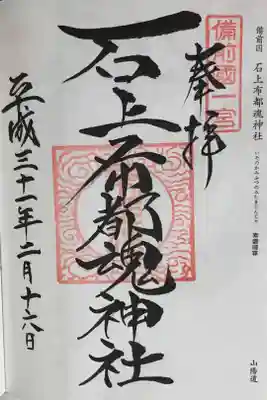 備前国 石上布都魂神社
いそのかみふつのみたまじんじゃ
山陽道
備前國一宮
奉拝
石上布都魂神社
平成三十一年二月十六日